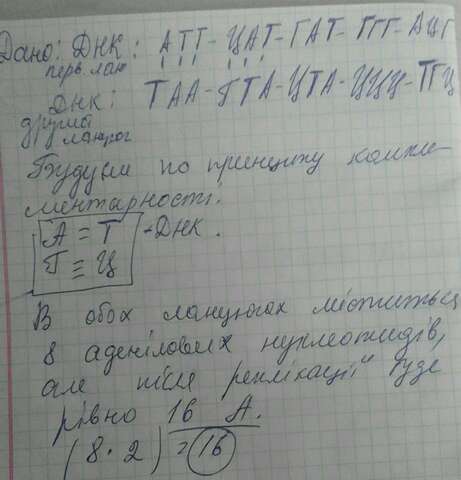 Дано: ДНК: АТТ-ЦАТ-ГАТ-ГГГ-АЦГ
перв. лан
ДНК: ТАА-ГТА-ЦТА-ЦЦЦ-ТГЦ
другий
ланцюг
Будуєм по принципу компле-
ментарності:
А = Т -ДНК.
Г ≡ Ц
В обох ланцюгах міститься
8 аденілових нуклеотидів,
але після реплікації буде
рівно 16 А.
(8·2) = 16